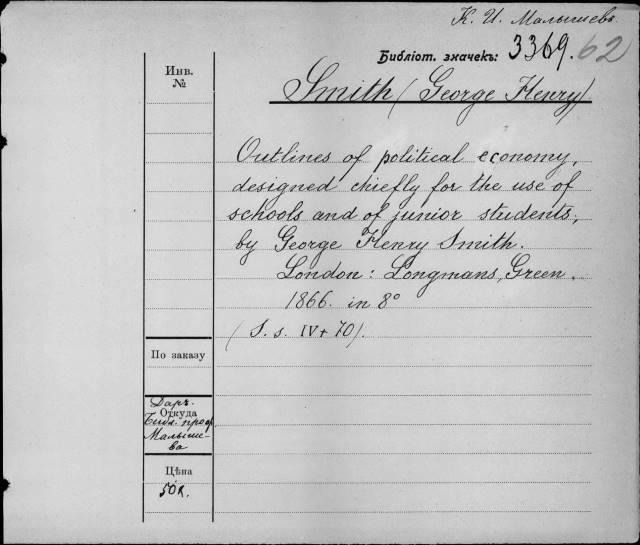 К. И. Малышевъ
Библіот. значекъ: 3369. 62
Инв.
№
Smith (George Henry)
Outlines of political economy,
designed chiefly for the use of
schools and of junior students,
by George Henry Smith.
London: Longmans, Green.
1866. in 8°
(S. s. IV + 70).
По заказу
Даръ
Откуда
Библ. проф.
Малыше-
ва
Цѣна
50к.